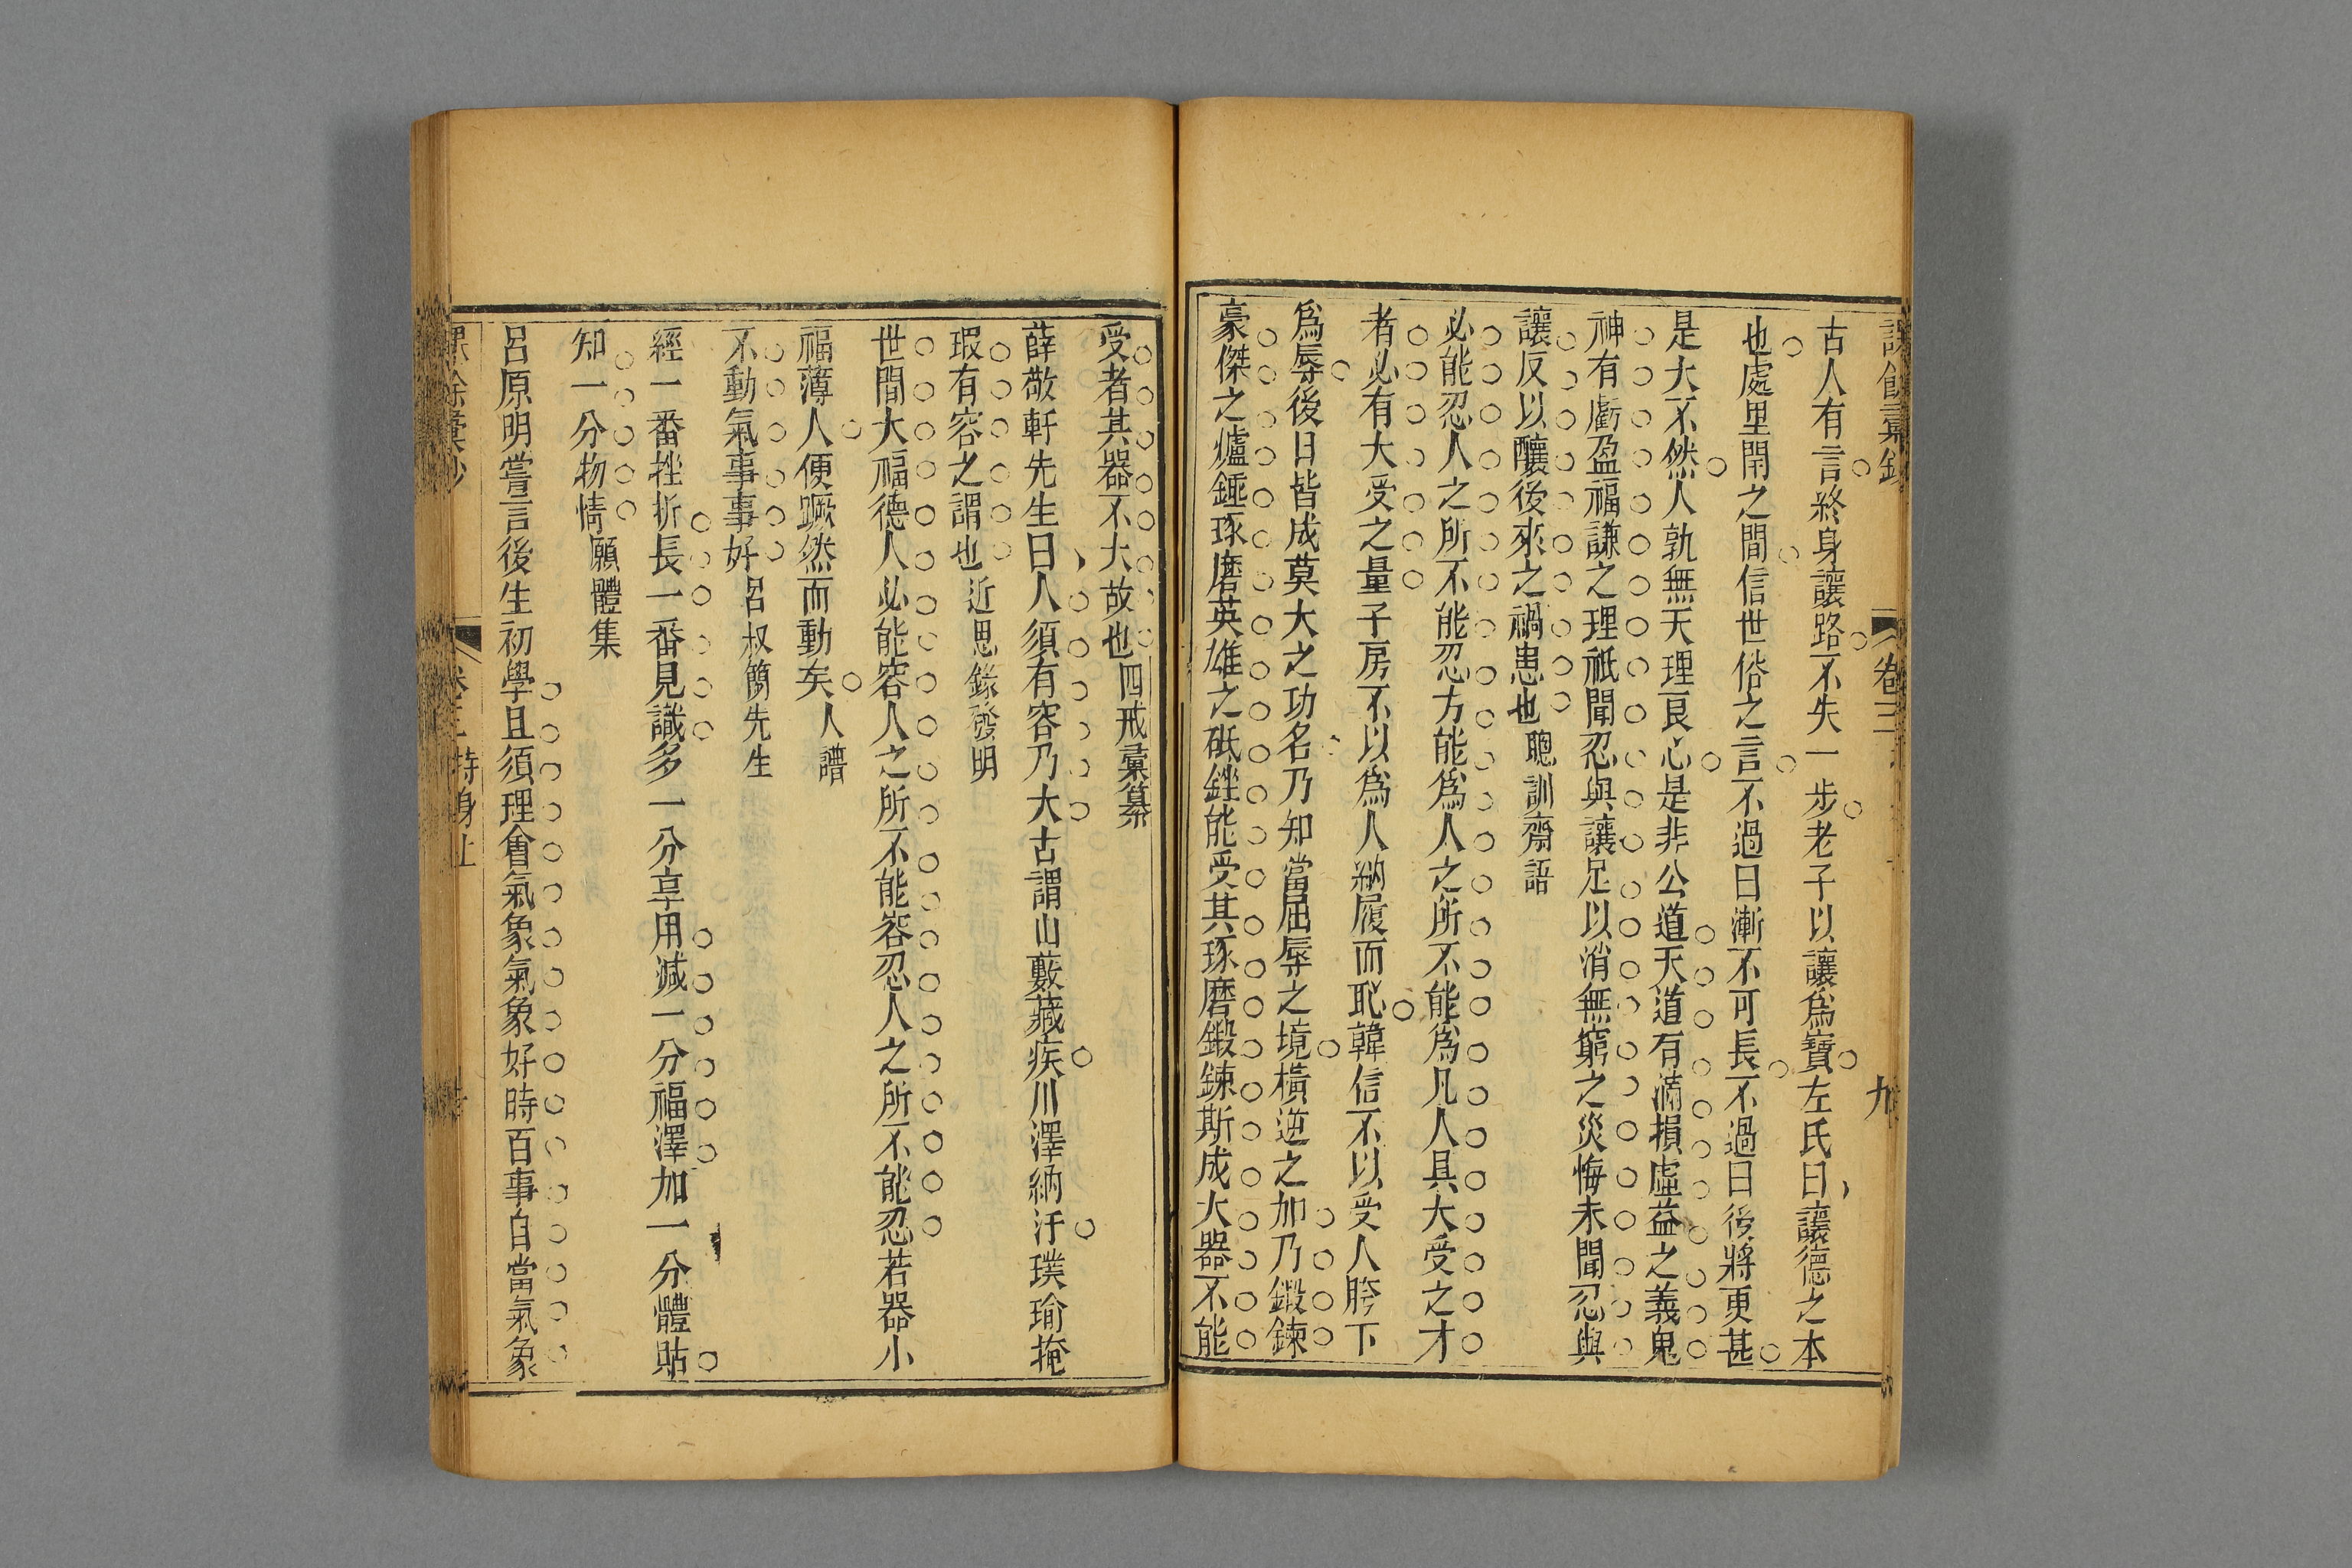 課餘彙鈔
卷三
九
古人有言終身讓路不失一步老子以讓爲寶左氏曰讓德之本
也處里閈之間信世俗之言不過曰漸不可長不過曰後將更甚
是大不然人孰無天理良心是非公道天道有滿損虛益之義鬼
神有虧盈福謙之理祇聞忍與讓足以消無窮之災悔未聞忍與
讓反以釀後來之禍患也聰訓齋語
必能忍人之所不能忍方能爲人之所不能爲凡人具大受之才
者必有大受之量子房不以爲人納履而恥韓信不以受人胯下
爲辱後日皆成莫大之功名乃知當屈辱之境橫逆之加乃鍛鍊
豪傑之爐錘琢磨英雄之砥銼能受其琢磨鍛鍊斯成大器不能
受者其器不大故也四戒彙纂
薛敬軒先生曰人須有容乃大古謂山藪藏疾川澤納汙璞瑜掩
瑕有容之謂也近思錄發明
世間大福德人必能容人之所不能容忍人之所不能忍若器小
福薄人便蹶然而動矣人譜
不動氣事事好呂叔簡先生
經一番挫折長一番見識多一分享用減一分福澤加一分體貼
知一分物情願體集
呂原明嘗言後生初學且須理會氣象氣象好時百事自當氣象
課餘彙鈔
卷三 持身上